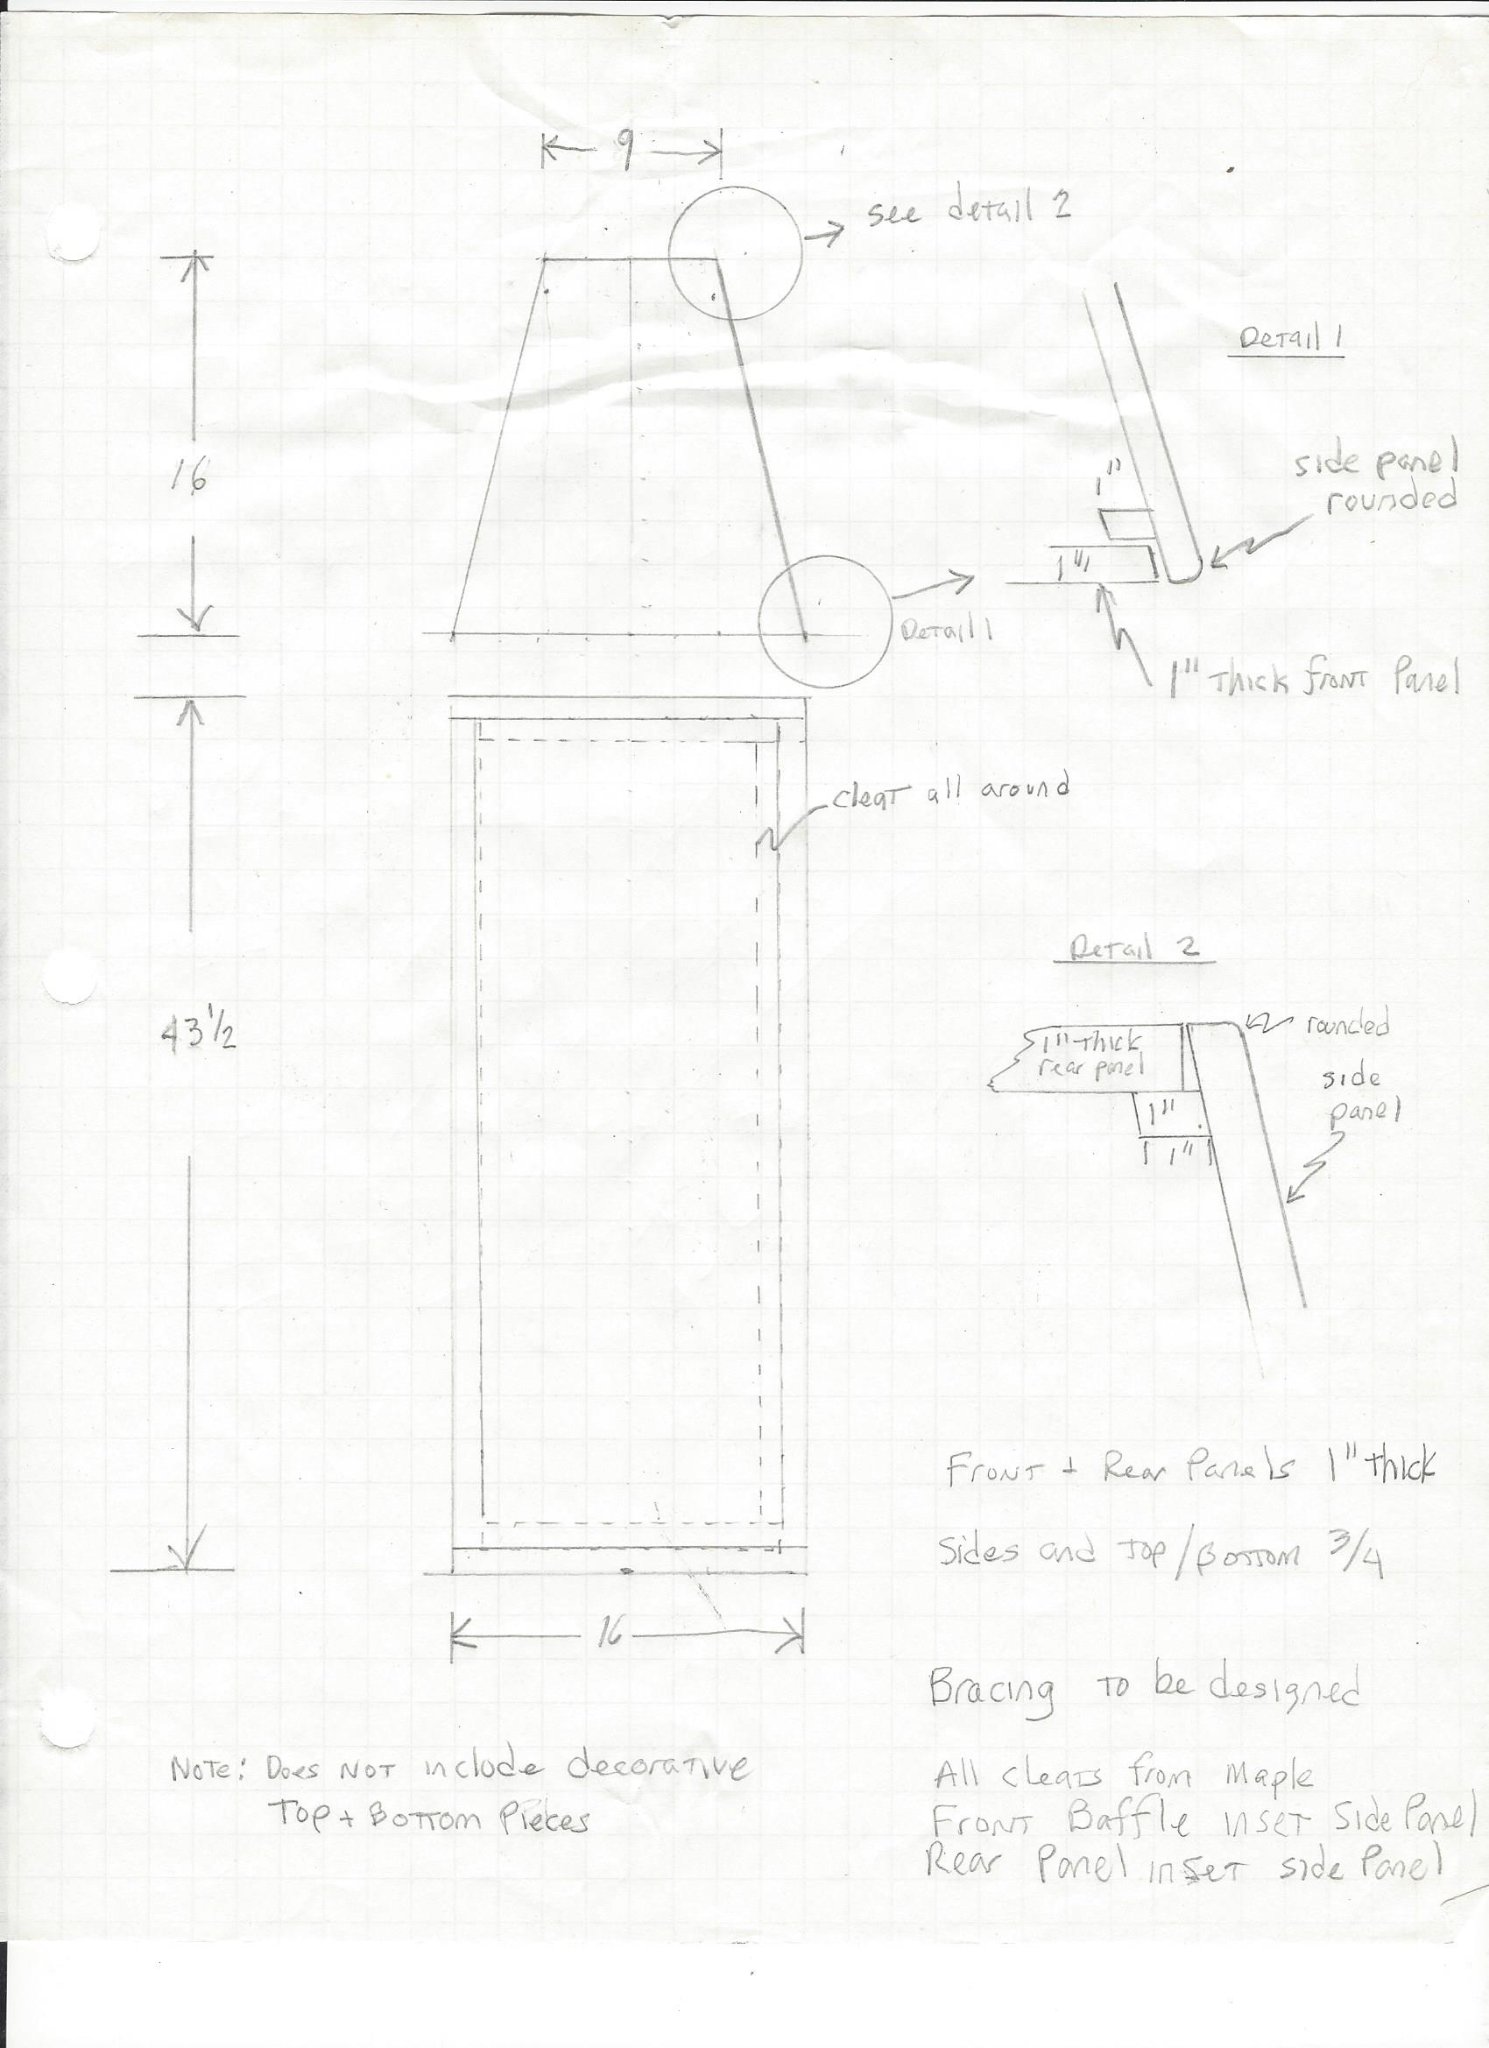 9
see detail 2
Detail 1
16
1"
side panel
rounded
1"
Detail 1
1" Thick front Panel
cleat all around
Detail 2
43 1/2
1" Thick
rear panel
rounded
side
panel
1"
1"
Front + Rear Panels 1" thick
Sides and Top/Bottom 3/4
16
Bracing to be designed
Note: Does Not include decorative
Top + Bottom Pieces
All cleats from Maple
Front Baffle inset Side Panel
Rear Panel inset side Panel